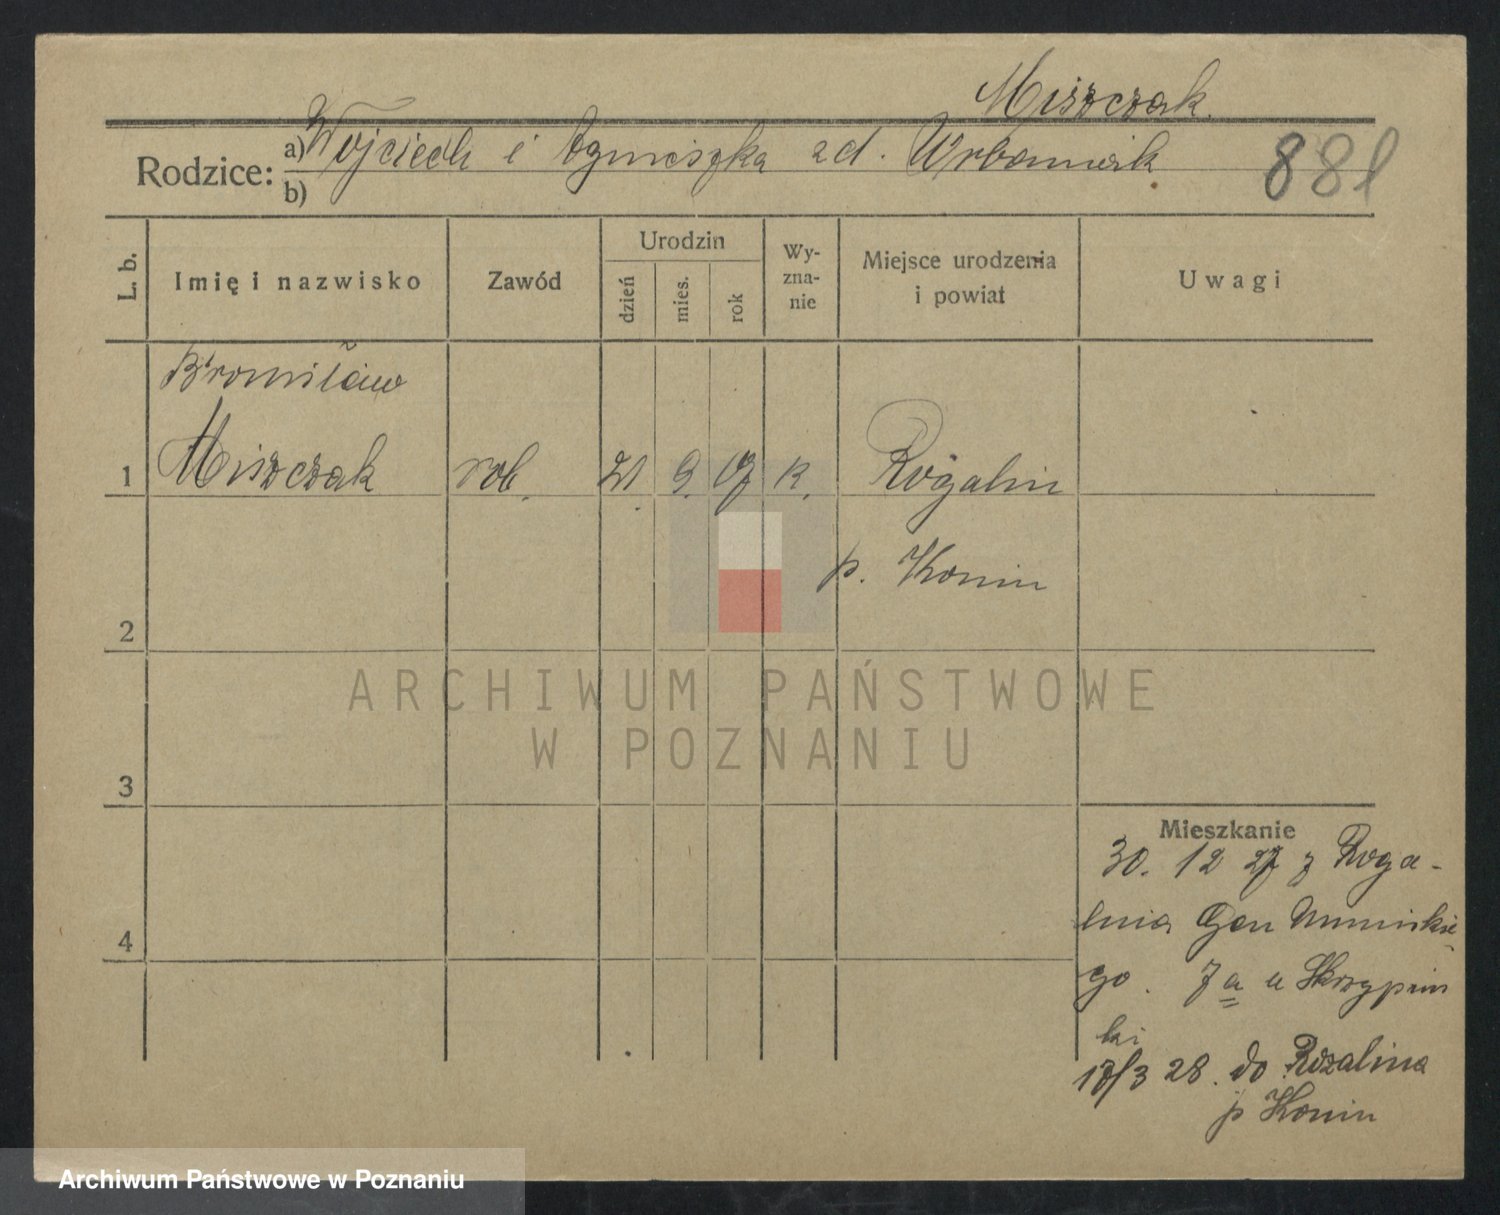 Miszczak.
Rodzice: a) Wojciech i Agnieszka zd. Urbaniak
b)
881
L. b.
Imię i nazwisko
Zawód
Urodzin
dzień
mies.
rok
Wy-
zna-
nie
Miejsce urodzenia
i powiat
Uwagi
Bronisław
1 Miszczak rob. 21. 9. 07 k. Rogalin
p. Konin
2
3
4
Mieszkanie
30. 12 27 z Roga-
lnia Gen Umińskie-
go. 7a u Skrzypiń
ski
17/3 28. do Rozalina
p Konin
ARCHIWUM PAŃSTWOWE
W POZNANIU
Archiwum Państwowe w Poznaniu